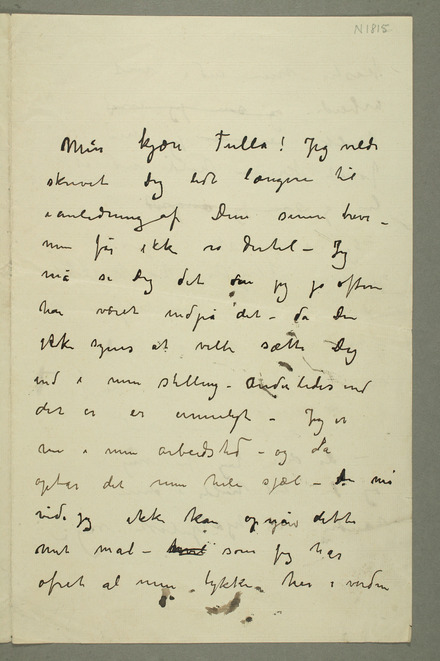 N1815
Min kjære Tulla! Jeg vilde
skrevet dig lidt længere til
i anledning af Dine senere breve –
men får ikke ro dertil – Jeg
må si Dig det som jeg jo oftere
har været indpå det – da Du
ikke synes at ville sætte Dig
ind i min stilling – anderledes end
det er er umuligt – Jeg er
nu i min arbeidstid – og da
optar det min hele sjæl – Du må
vide jeg ikke kan opgive dette
mit mål – som jeg har
ofret al min lykke her i verden